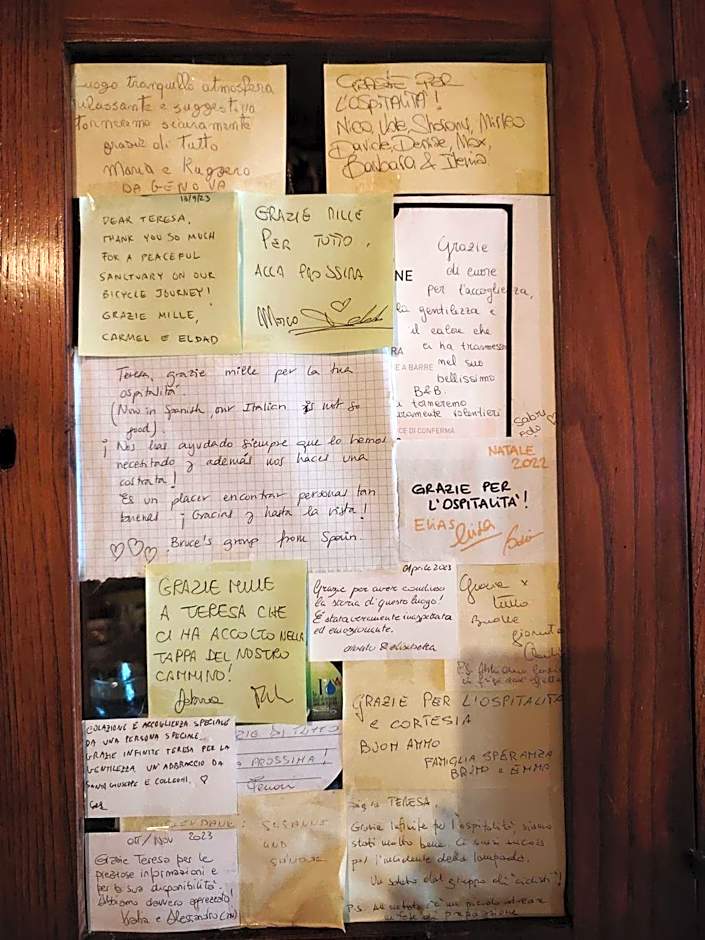 Luogo tranquillo atmosfera
rilassante e suggestiva
torneremo sicuramente
grazie di tutto
Maria e Ruggero
DA GENOVA
GRAZIE PER
L'OSPITALITÀ!
Nico, Sharon, Mirko
Davide, Denise, Max,
Barbara & Ilenia
18/9/23
DEAR TERESA,
THANK YOU SO MUCH
FOR A PEACEFUL
SANCTUARY ON OUR
BICYCLE JOURNEY!
GRAZIE MILLE,
CARMEL E ELDAD
GRAZIE MILLE
PER TUTTO,
ALLA PROSSIMA
Marco
Grazie
di cuore
NE
per l'accoglienza,
la gentilezza e
il calore che
RA
ci ha trasmesso
E A BARRE
nel suo
bellissimo
B&B.
torneremo
volentieri
CE DI CONFERMA
Teresa, grazie mille per la tua
ospitalità.
(Now in Spanish, our Italian is not so
good).
¡Nos has ayudado siempre que lo hemos
necesitado y además nos haces una
!
Es un placer encontrar personas tan
buenas ¡Gracias y hasta la vista!
Bruce's group from Spain.
NATALE
2022
GRAZIE PER
L'OSPITALITÀ!
ELIAS
Luisa
GRAZIE MILLE
A TERESA CHE
CI HA ACCOLTO NELLA
TAPPA DEL NOSTRO
CAMMINO!
Aprile 2023
Grazie per aver condiviso
la storia di questo luogo!
È stata veramente inaspettata
ed emozionante.
Elisabetta
Grazie x
tutto
Buone
giornate
GRAZIE PER L'OSPITALITÀ
e CORTESIA
BUON ANNO
FAMIGLIA SPERANZA
BRUNO e EMMA
COLAZIONE E ACCOGLIENZA SPECIALE
DA UNA PERSONA SPECIALE.
GRAZIE INFINITE TERESA PER LA
GENTILEZZA UN ABBRACCIO DA
GIUSEPPE E COLLEGHI. ♡
DI TUTTO
PROSSIMA!
SUSANNE
UND
OTT/NOV 2023
Grazie Teresa per le
preziose informazioni e
per la sua disponibilità.
Abbiamo davvero apprezzato!
Katia e Alessandro
TERESA,
Grazie infinite per l'ospitalità, siamo
stati molto bene. Ci scusi ancora
per l'incidente della lampada.
Un saluto dal gruppo di "ciclisti"!
P.S.